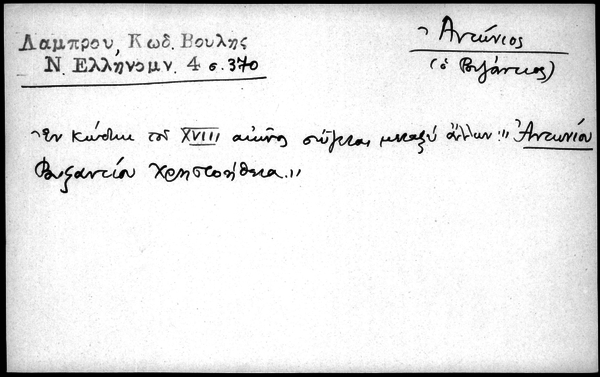 Λαμπρου, Κωδ. Βουλης
Ν. Ελληνομν. 4 σ. 370
Ἀντώνιος
(ὁ Βυζάντιος)
Ἐν κώδικι τοῦ XVIII αἰῶνος σῴζεται μεταξὺ ἄλλων: "Ἀντωνίου
Βυζαντίου Χρηστοήθεια."